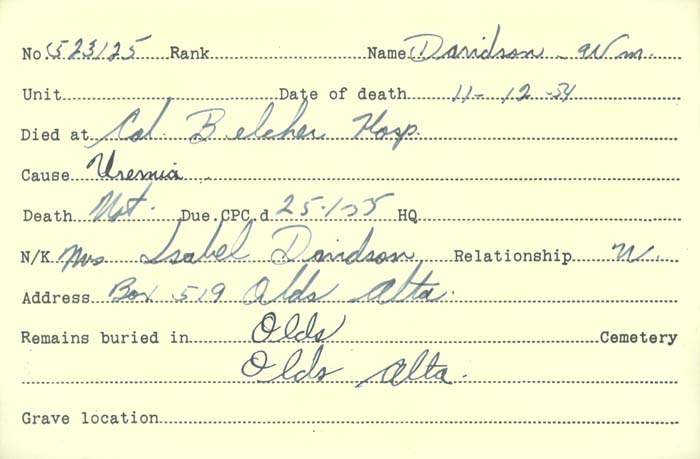 No. 523125 Rank Name Davidson - Wm.
Unit Date of death 11-12-54
Died at Col. Belcher Hosp.
Cause Uremia
Death Not. Due. CPC. d 25-1-55 HQ
N/K Mrs Isabel Davidson Relationship W.
Address Box 519 Olds Alta.
Remains buried in Olds Cemetery
Olds Alta.
Grave location